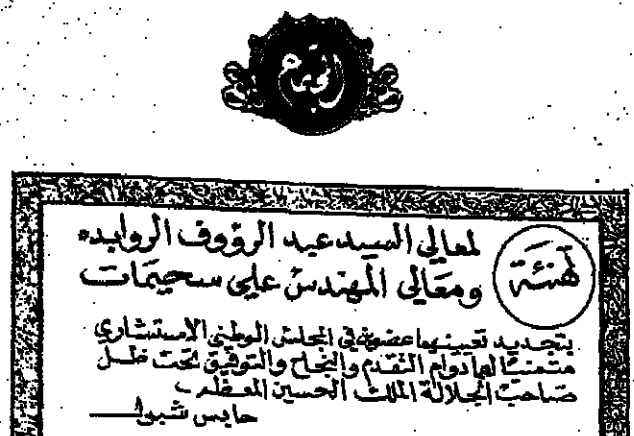 تهنئة
لمعالي السيد عبد الرؤوف الروابده
ومعالي المهندس علي سحيمات
بتجديد تعيينهما عضوين في المجلس الوطني الاستشاري
متمنيًا لهما دوام التقدم والنجاح والتوفيق تحت ظل
صاحب الجلالة الملك الحسين المعظم
حايس شبول